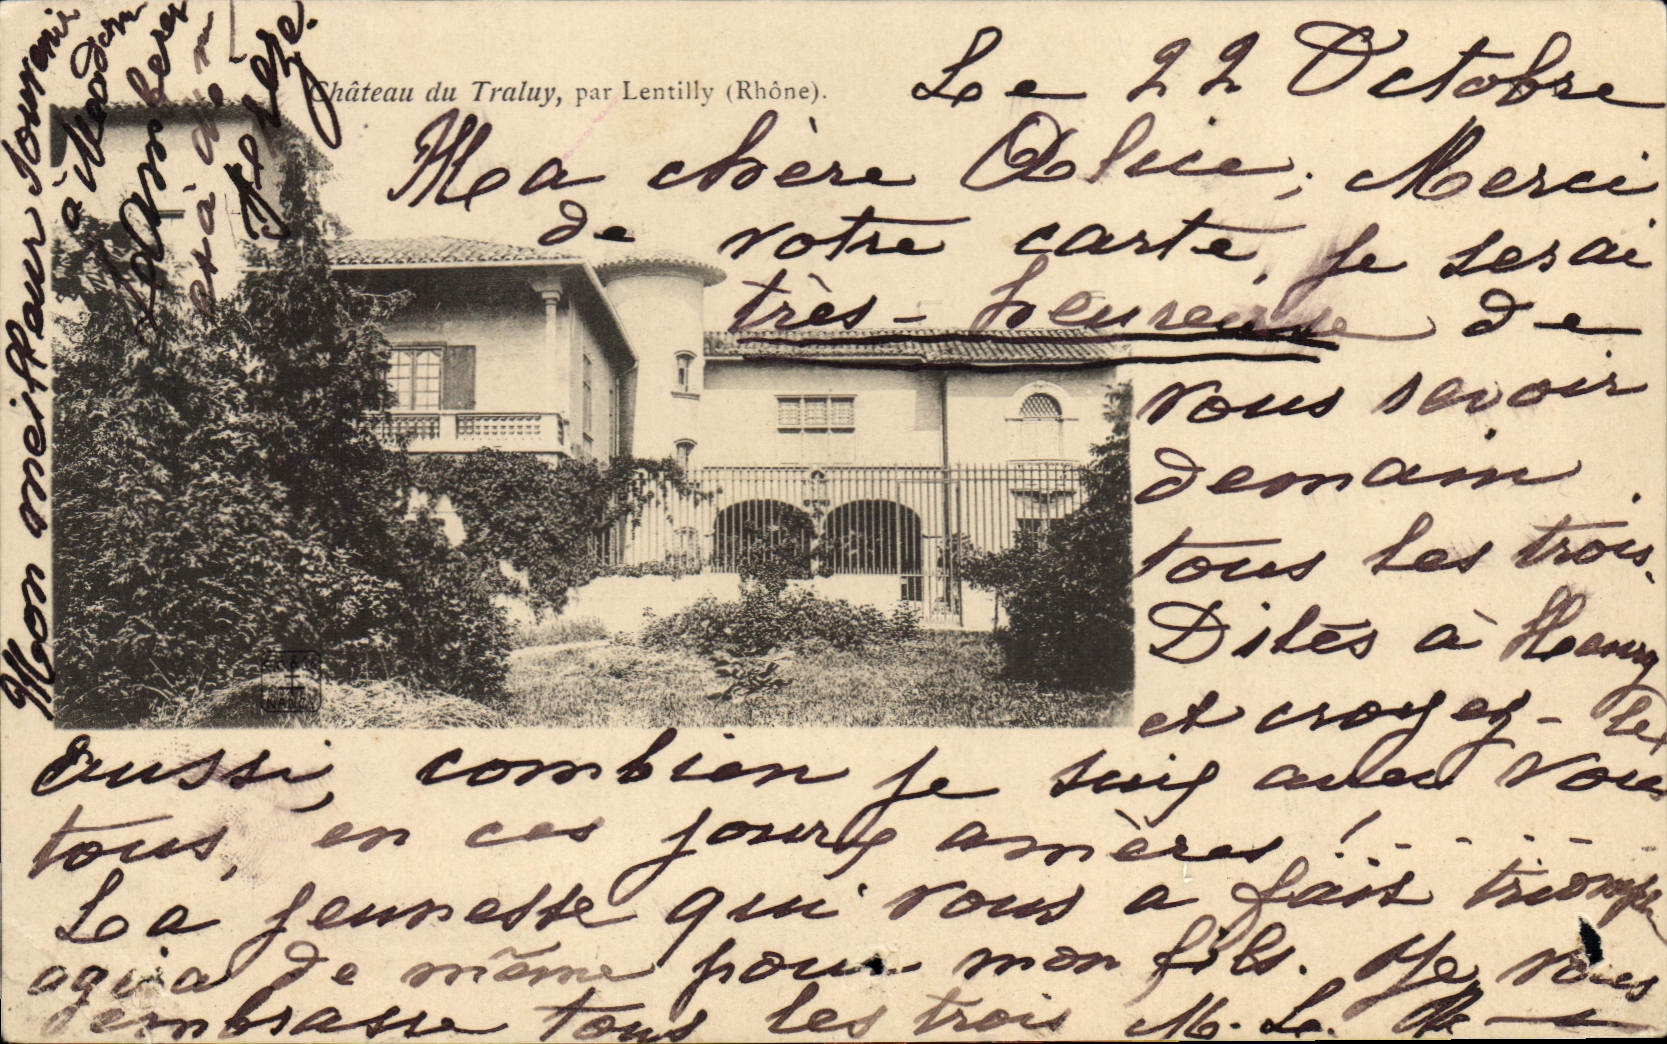 Château du Traluy, par Lentilly (Rhône).
Le 22 Octobre
Ma chère Alice, Merci
de votre carte, je serai
très-heureuse de
vous revoir
demain
tous les trois.
Dites à
et croyez-le
aussi, combien je suis avec vous
tous, en ces jours amères!
La jeunesse qui vous a fait
agira de même pour mon fils. Je vous
embrasse tous les trois M. L.
Mon meilleur souvenir
à
et à